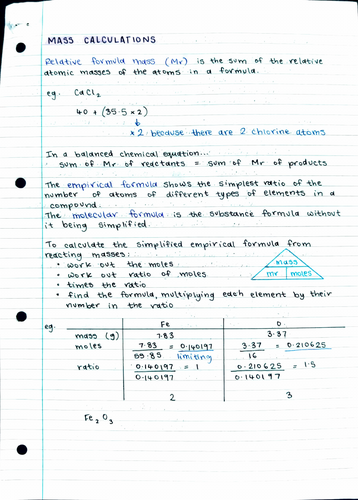 MASS CALCULATIONS
Relative formula mass (Mr) is the sum of the relative
atomic masses of the atoms in a formula.
eg. CaCl₂
40 + (35.5 × 2)
× 2 because there are 2 chlorine atoms
In a balanced chemical equation...
sum of Mr of reactants = sum of Mr of products
The empirical formula shows the simplest ratio of the
number of atoms of different types of elements in a
compound.
The molecular formula is the substance formula without
it being simplified.
To calculate the simplified empirical formula from
reacting masses:
• work out the moles
• work out ratio of moles
• times the ratio
• find the formula, multiplying each element by their
number in the ratio
mass
mr moles
eg. Fe O
mass (g) 7.83 3.37
moles 7.83 = 0.140197 3.37 = 0.210625
55.85 limiting 16
ratio 0.140197 = 1 0.210625 = 1.5
0.140197 0.140197
2 3
Fe₂O₃